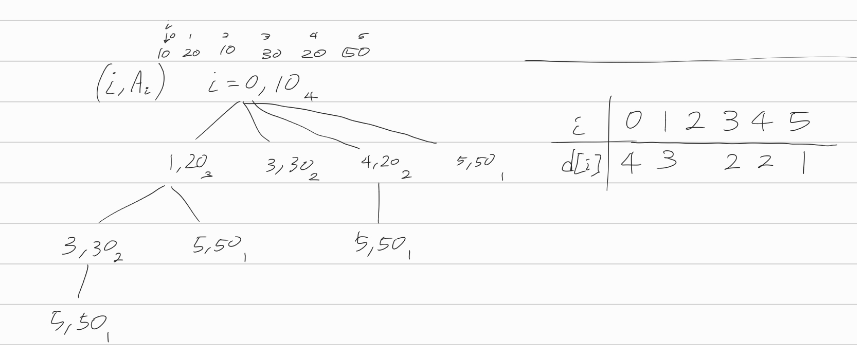 0 1 2 3 4 5
10 20 10 30 20 50
(i, Ai) i = 0, 10 4
1, 20 3 3, 30 2 4, 20 2 5, 50 1
3, 30 2 5, 50 1 5, 50 1
5, 50 1
i 0 1 2 3 4 5
d[i] 4 3 2 2 1